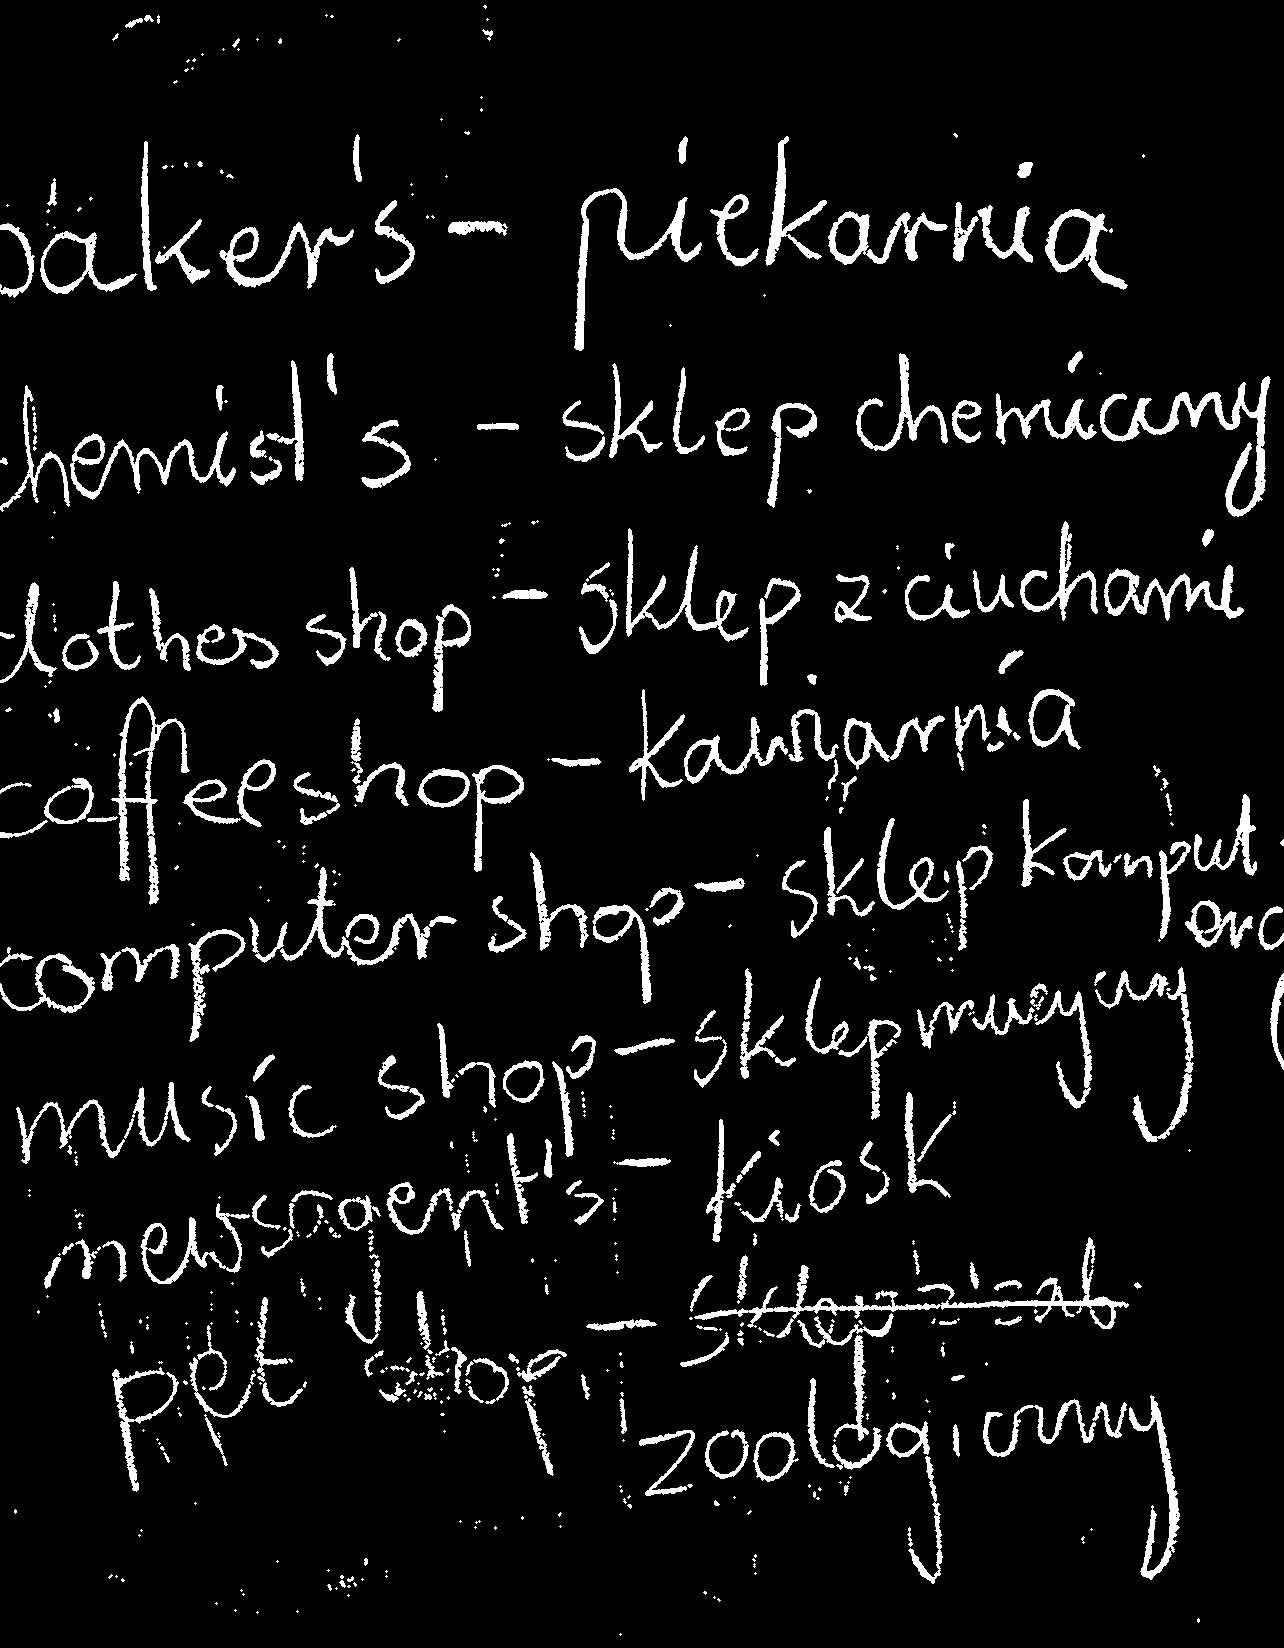 baker's - piekarnia
chemist's - sklep chemiczny
clothes shop - sklep z ciuchami
coffee shop - kawiarnia
computer shop - sklep komput
music shop - sklep muzyczny
newsagent's - kiosk
pet shop - sklep
zoologiczny